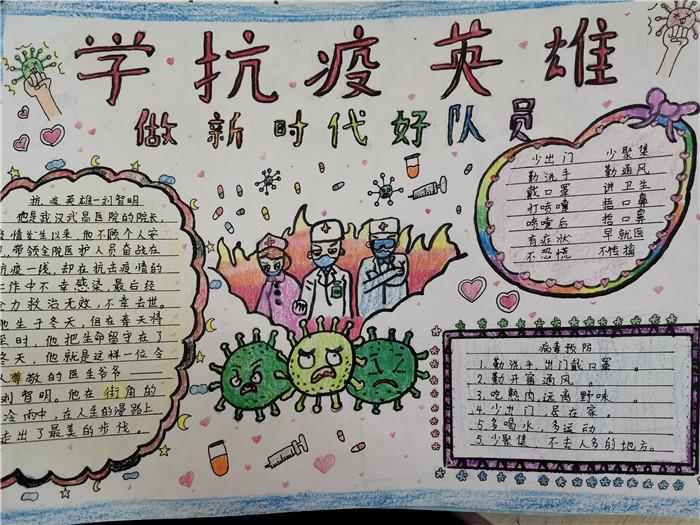 学抗疫英雄
做新时代好队员
抗疫英雄—刘智明
他是武汉武昌医院的院长,
疫情发生以来,他不顾个人安
危,带领全院医护人员奋战在
抗疫一线,却在抗击疫情的
工作中不幸感染,最后经
全力救治无效,不幸去世。
他生于冬天,但在春天将
至时,他把生命留守在了
冬天,他就是这样一位令
人尊敬的医生爷爷——
刘智明。他在街角的
冷雨中,在人生的漫路上
走出了最美的步伐。
少出门 少聚集
勤洗手 勤通风
戴口罩 讲卫生
打喷嚏 捂口鼻
喷嚏后 捂口
有症状 早就医
不恐慌 不传
病毒预防
1.勤洗手出门戴口罩。
2.勤开窗通风。
3.吃熟肉,远离野味。
4.少出门,居在家。
5.多喝水,多运动。
5.少聚集 不去人多的地方。